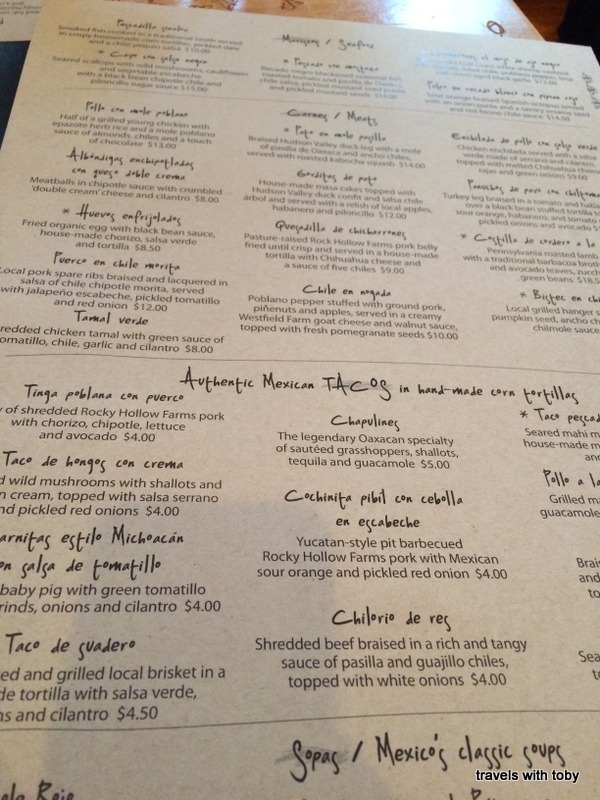 Pescadillo
Smoked fish cooked in a Mexican broth served
in crispy housemade corn tortillas, pickled slaw
and a chile pequin salsa
Mariscos / Seafood
* Callo con salsa negra
Seared scallops with wild mushrooms, cauliflower
and vegetable escabeche,
with a black bean chipotle chile and
piloncillo sugar sauce $15.00
* Pescado con
and pickled
Pulpo en recado blanco con pipian rojo
and red fresno chile sauce $14.50
Carnes / Meats
Pollo con mole poblano
Half of a grilled young chicken with
epazote herb rice and a mole poblano
sauce of almonds, chiles and a touch
of chocolate $13.00
Albóndigas enchipotladas
con queso doble crema
Meatballs in chipotle sauce with crumbled
'double cream' cheese and cilantro $8.00
* Huevos enfrijolados
Fried organic egg with black bean sauce,
house-made chorizo, salsa verde
and tortilla $8.50
Puerco en chile morita
Local pork spare ribs braised and lacquered in
salsa of chile chipotle morita, served
with jalapeño escabeche, pickled tomatillo
and red onion $12.00
Tamal verde
redded chicken tamal with green sauce of
omatillo, chile, garlic and cilantro $8.00
* Pato en mole pasilla
Braised Hudson Valley duck leg with a mole
of pasilla de Oaxaca and ancho chiles,
served with roasted kabocha squash $14.00
Gorditas de pato
House-made masa cakes topped with
Hudson Valley duck confit and salsa chile
árbol and served with a relish of local apples,
habanero and piloncillo $12.00
Quesadilla de chicharrones
Pasture-raised Rock Hollow Farms pork belly
fried until crisp and served in a house-made
tortilla with Chihuahua cheese and
a sauce of five chiles $9.00
Chile en nogada
Poblano pepper stuffed with ground pork,
piñenuts and apples, served in a creamy
Westfield Farm goat cheese and walnut sauce,
topped with fresh pomegranate seeds $10.00
Enchilada de pollo con salsa verde
Chicken enchilada served with a salsa
verde made of serrano and cilantro,
topped with melted Chihuahua cheese
rajas and green onions $9.00
Panuchos de pavo con chiltoma
Turkey leg braised in a tomato and
over a black bean stuffed tortilla
sour orange, habanero, and tomato
pickled onions and avocado
* Costilla de cordero a la
Pennsylvania roasted lamb
with a traditional barbacoa
and avocado leaves,
green beans $18.5
* Bistec en
Local grilled hanger
pumpkin seed, ancho
chilmole sauce
Authentic Mexican TACOS in hand-made corn tortillas
Tinga poblana con puerco
y of shredded Rocky Hollow Farms pork
with chorizo, chipotle, lettuce
and avocado $4.00
Taco de hongos con crema
d wild mushrooms with shallots and
n cream, topped with salsa serrano
nd pickled red onions $4.00
arnitas estilo Michoacán
on salsa de tomatillo
baby pig with green tomatillo
rinds, onions and cilantro $4.00
Taco de suadero
ed and grilled local brisket in a
de tortilla with salsa verde,
ns and cilantro $4.50
Chapulines
The legendary Oaxacan specialty
of sautéed grasshoppers, shallots,
tequila and guacamole $5.00
Cochinita pibil con cebolla
en escabeche
Yucatan-style pit barbecued
Rocky Hollow Farms pork with Mexican
sour orange and pickled red onion $4.00
Chilorio de res
Shredded beef braised in a rich and tangy
sauce of pasilla and guajillo chiles,
topped with white onions $4.00
* Taco pescad
Seared mahi m
house-made m
an
Pollo a la
Grilled ma
guacamole
Brais
and
to
Sea
to
Sopas / Mexico's classic soups
travels with toby